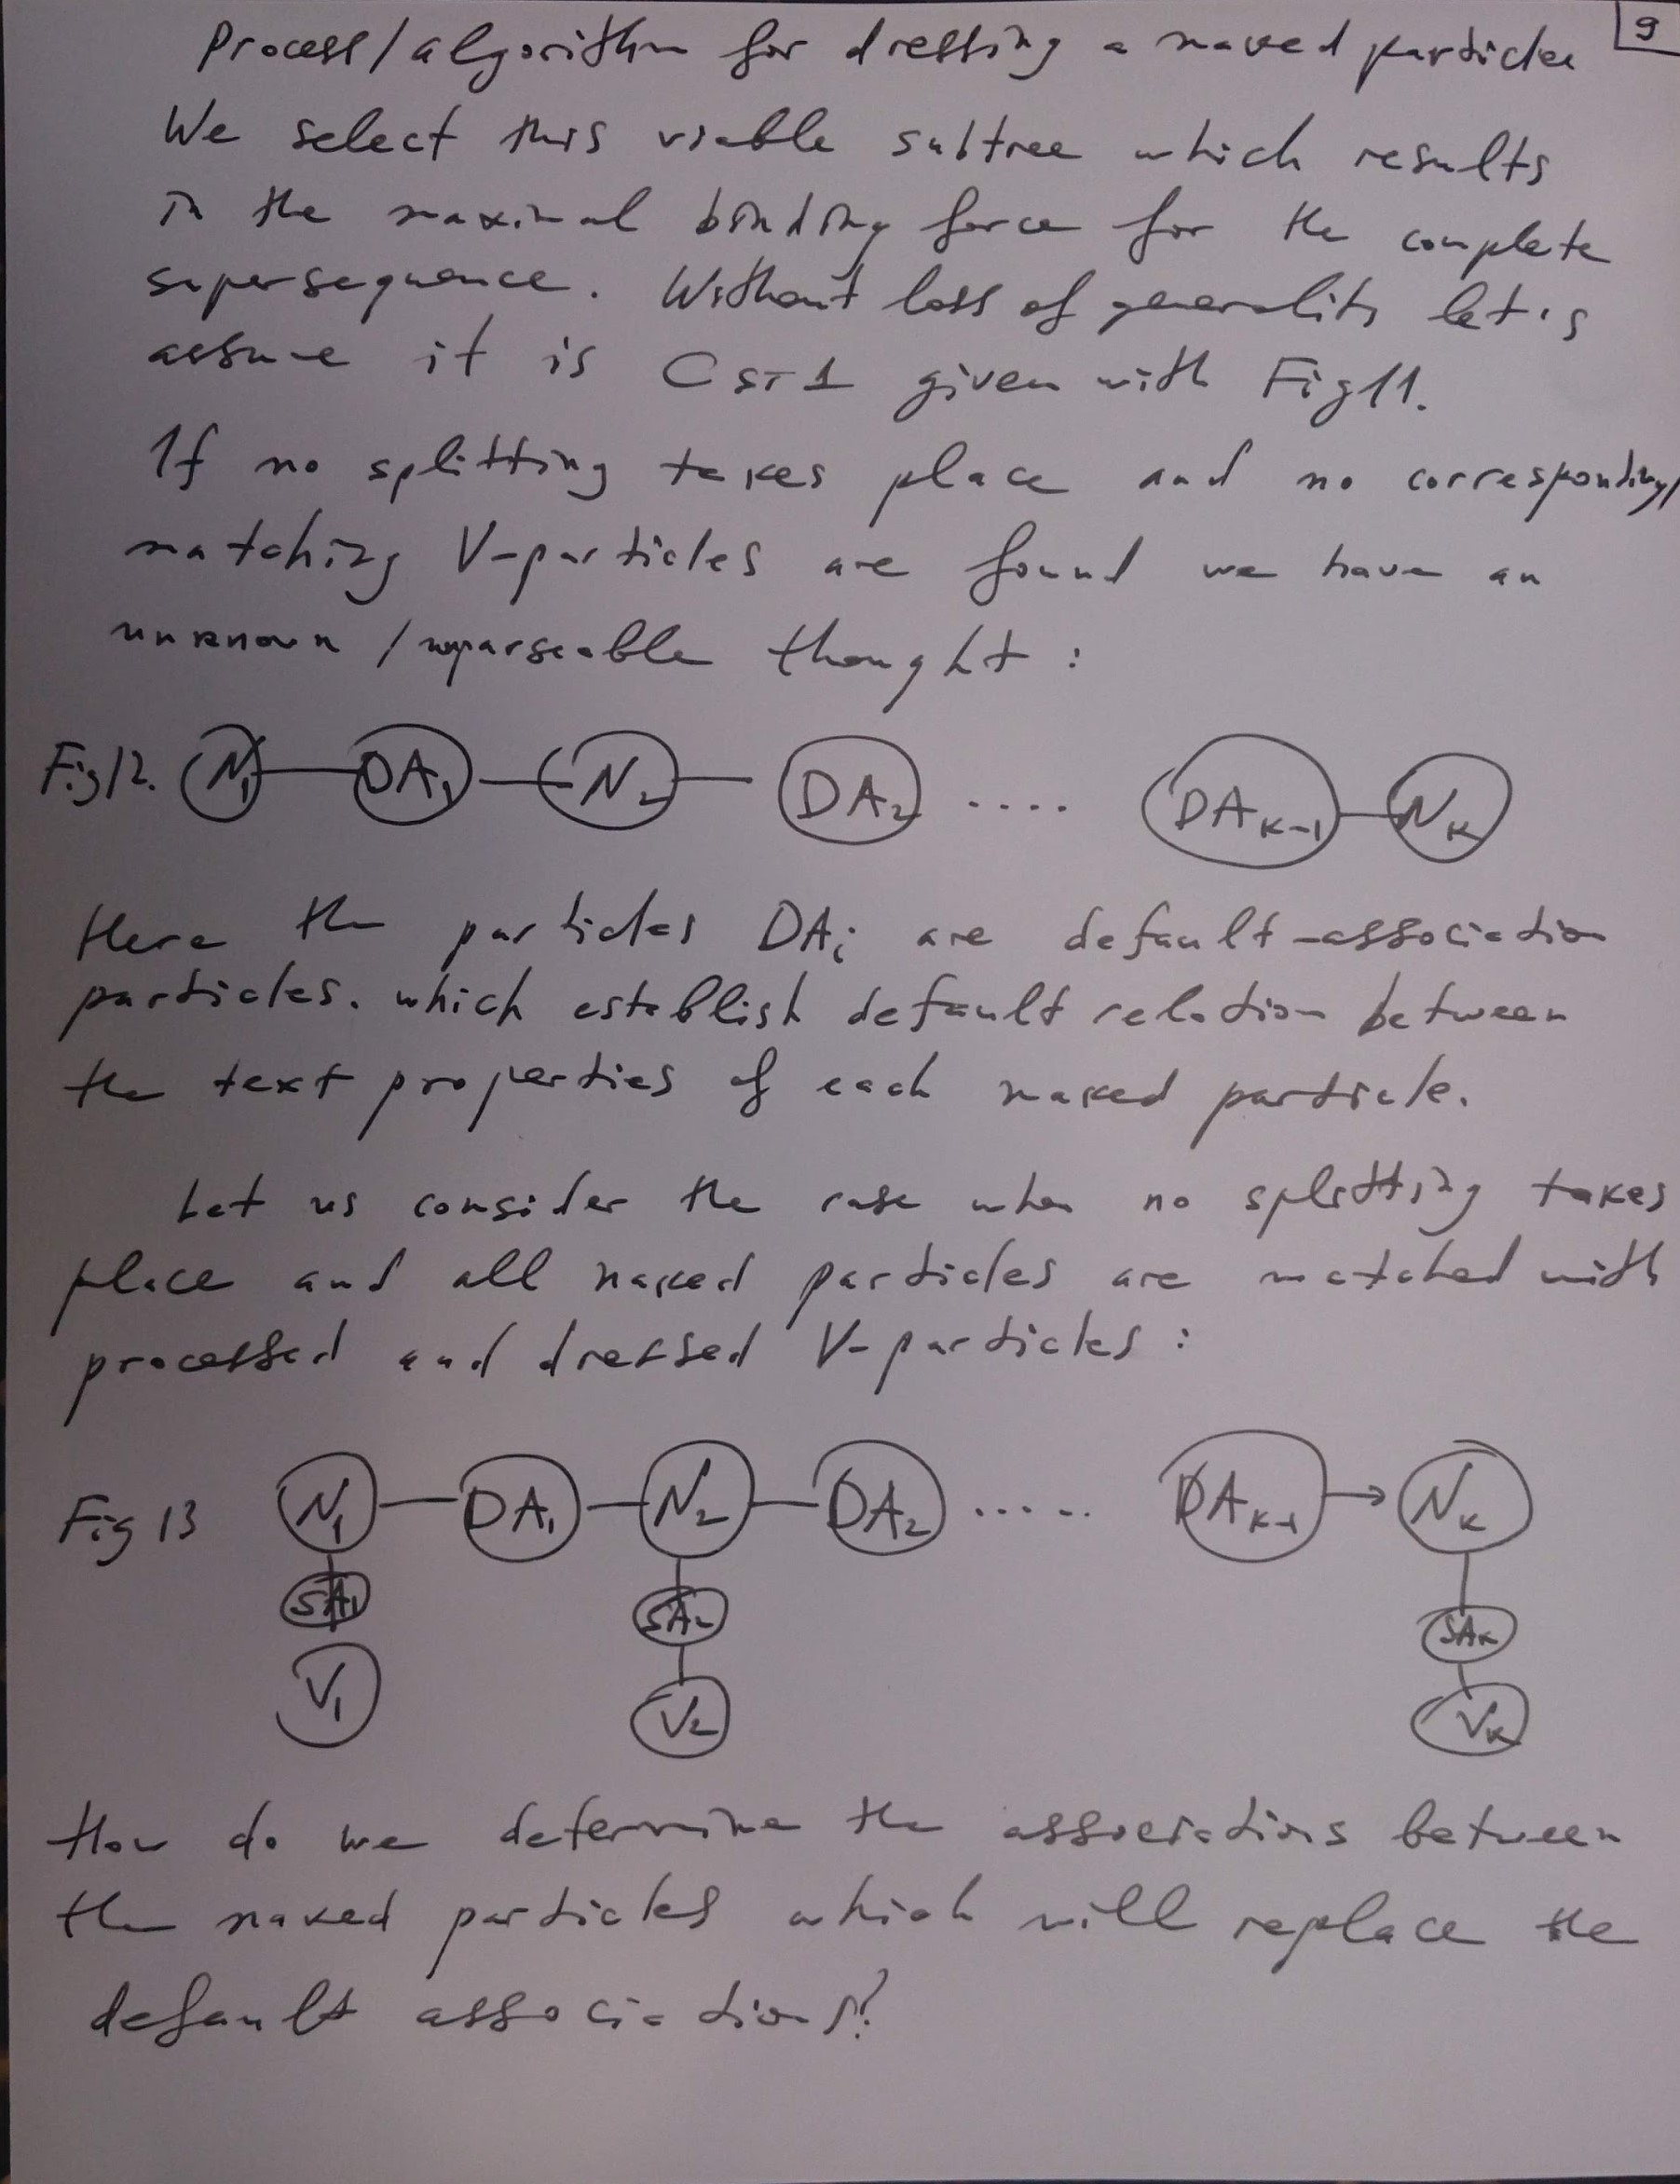 Process/algorithm for dressing a naked particle
9
We select this viable subtree which results
in the maximal binding force for the complete
supersequence. Without loss of generality let's
assume it is CST1 given with Fig11.
If no splitting takes place and no corresponding/
matching V-particles are found we have an
unknown /unparseable thought :
Fig12. N1 DA1 N2 DA2 .... DAK-1 NK
Here the particles DAi are default-association
particles. which establish default relation between
the text properties of each naked particle.
Let us consider the case when no splitting takes
place and all naked particles are matched with
processed and dressed V-particles :
Fig 13 N1 DA1 N2 DA2 ..... DAK-1 NK
SA1 SA2 SAK
V1 V2 VK
How do we determine the associations between
the naked particles which will replace the
default associations?